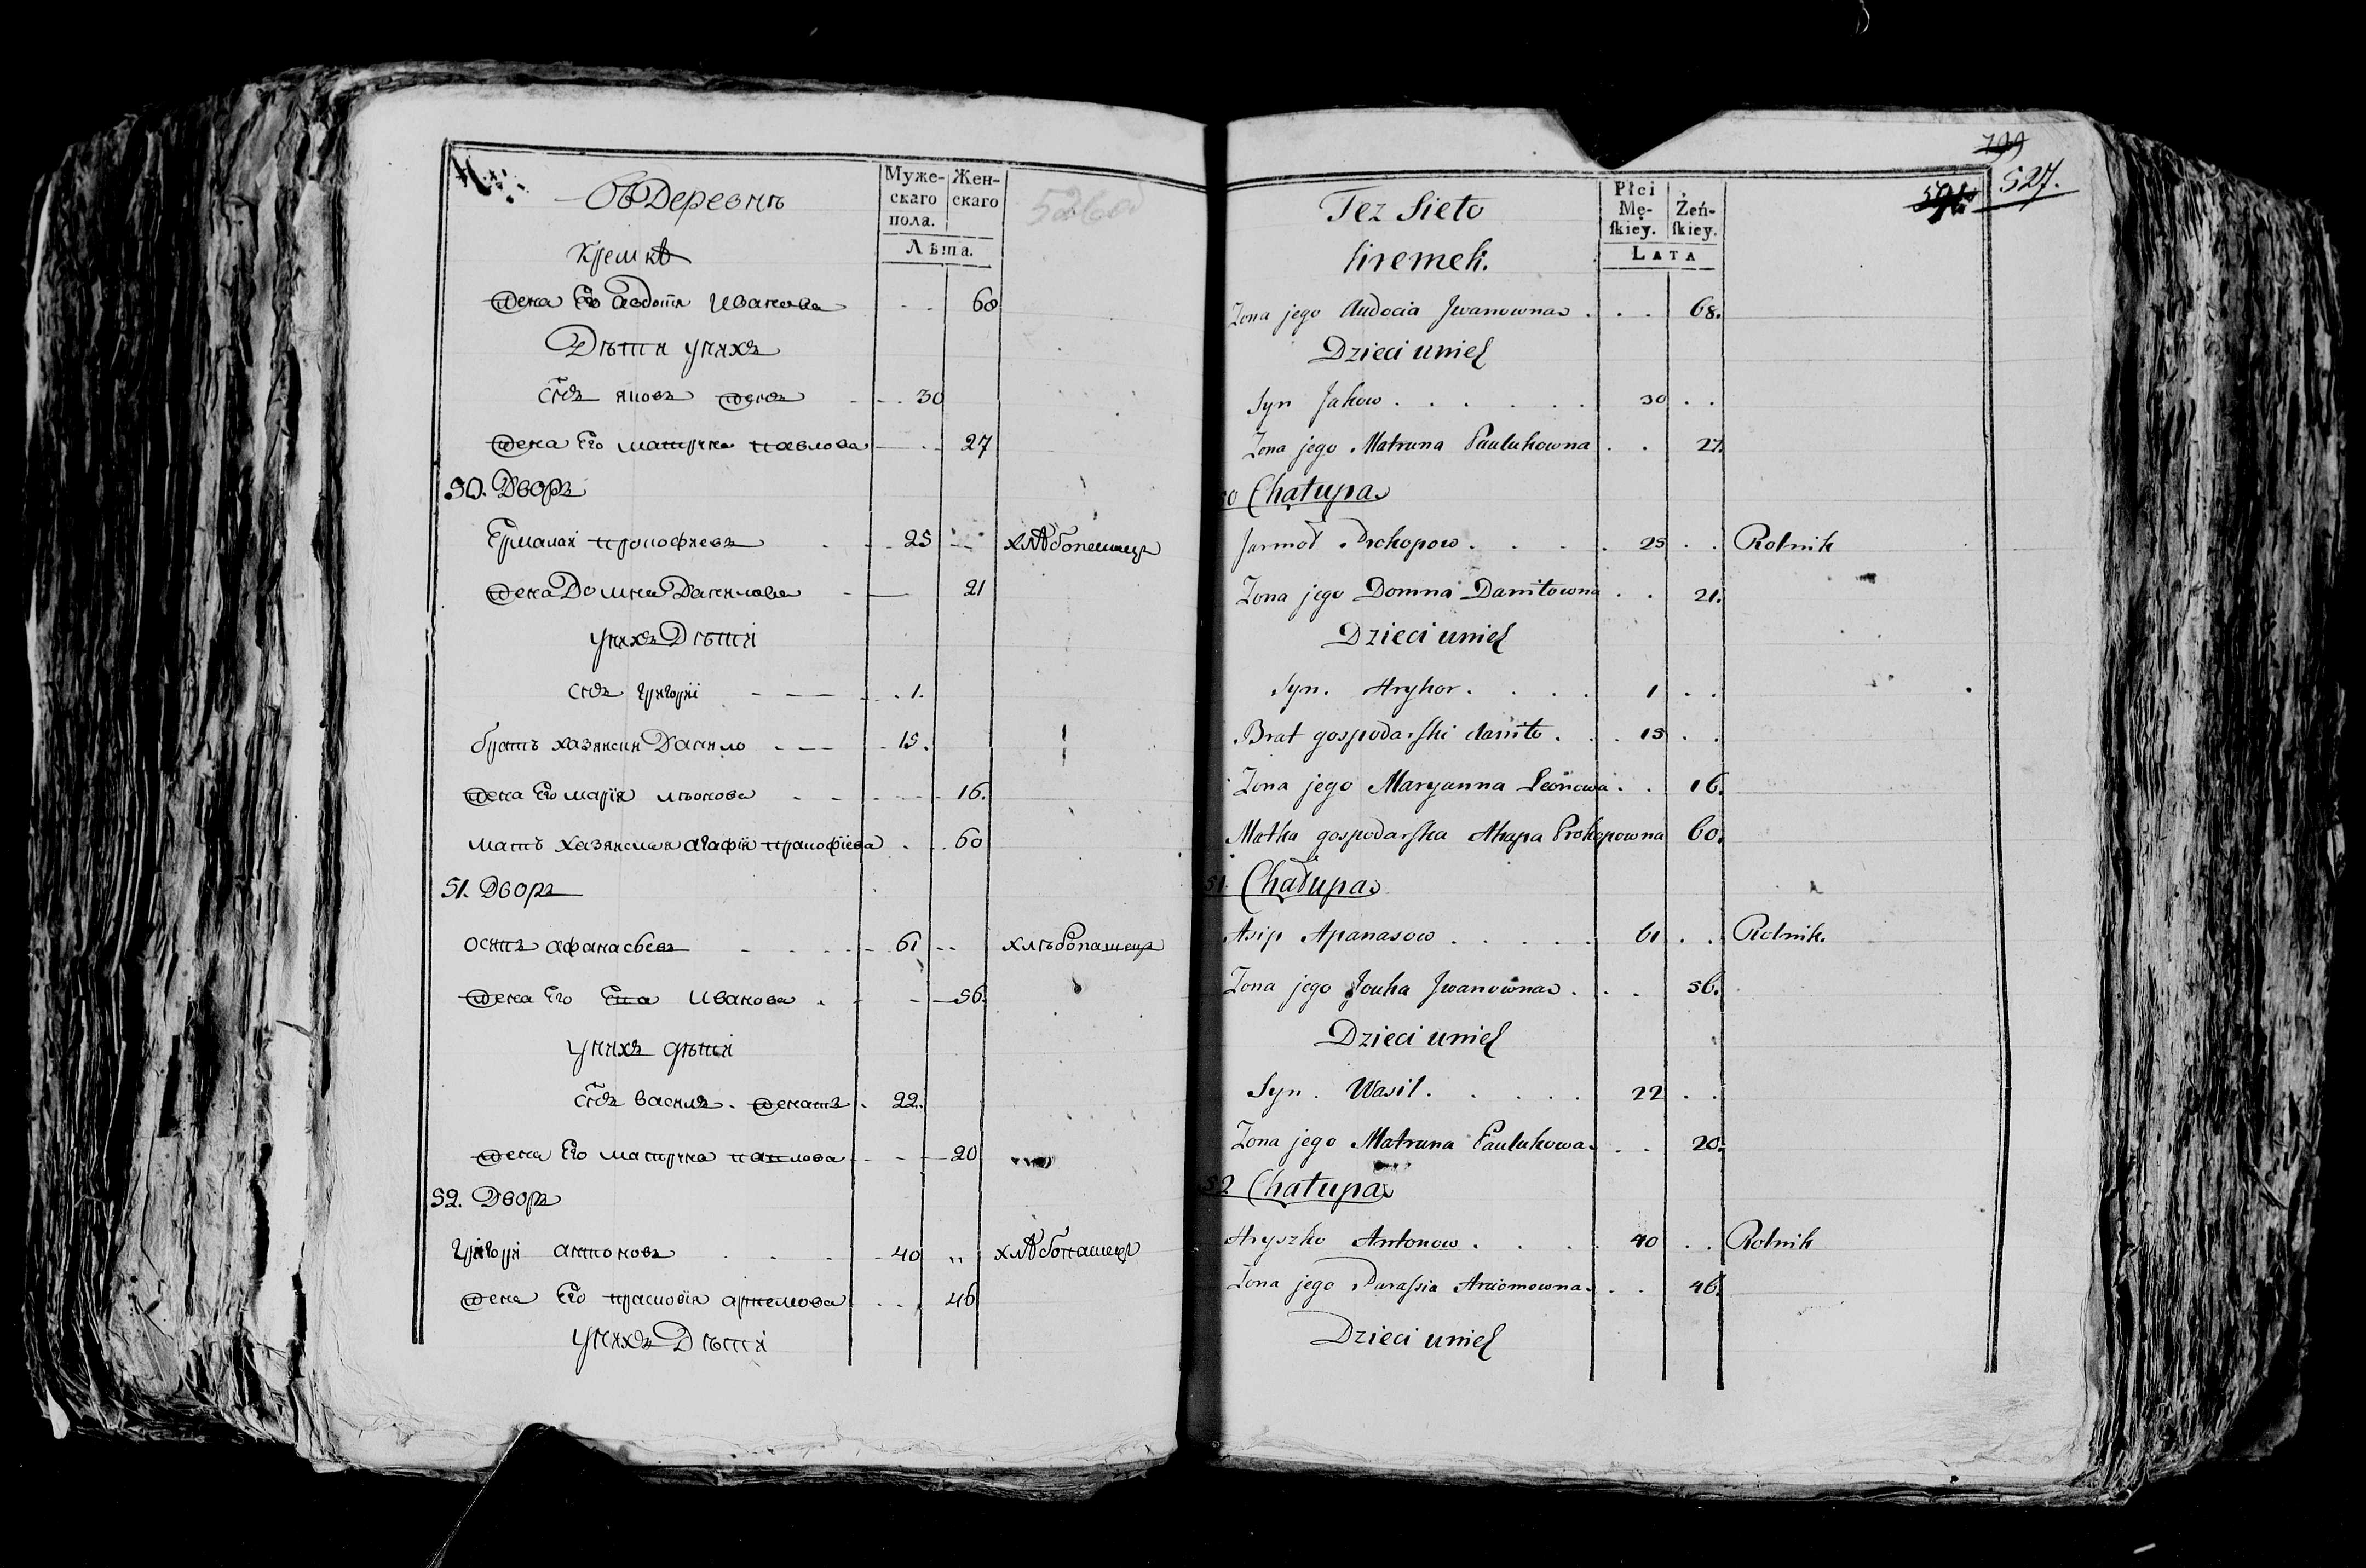 Муже-
скаго
пола.
Жен-
скаго
Лѣта.
Въ Деревнѣ
Кремнѣ
Жена Его Авдотія Иванова 68
Дѣти у нихъ
Сынъ яковъ женатъ 30
Жена Его матруна павлова 27
50. Дворъ
Ермалай прокофиевъ 25 хлѣбопашецъ
Жена Домна Данилова 21
у нихъ Дѣти
Сынъ григорій 1.
братъ хазяеинъ Данило 15.
Жена Его марія лѣонова 16.
мать хазяемая агафія пракофіева 60
51. Дворъ
осипъ афанасьевъ 61 хлѣбопашецъ
Жена Его Ева Иванова 56.
у нихъ дѣти
Сынъ василъ. женатъ. 22.
Жена Его матруна павлова 20
52. Дворъ
григорій антоновъ 40 хлѣбопашецъ
Жена Его прасковія артемова 46
у нихъ Дѣти
799
527.
Płci
Mę-
ſkiey.
Żeń-
ſkiey.
LATA
Tez Sieło
Kremek.
Zona jego Audocia Jwanowna 68.
Dzieci unieh
Syn Jakow 30
Zona jego Matruna Paulukowna 27.
50 Chałupa
Jarmoł Prokopow 25 Rolnik
Zona jego Domna Daniłowna 21.
Dzieci unieh
Syn. Hryhor 1
Brat gospodarſki daniło 15
Zona jego Maryanna Leonowa 16.
Matka gospodarſka Ahapa Prokopowna 60.
51. Chałupa
Asip Apanasow 61 Rolnik.
Zona jego Jouha Jwanowna 56.
Dzieci unieh
Syn. Wasil. 22
Zona jego Matruna Paulukowa 20.
52 Chałupa
Hryszko Antonow 40 Rolnik
Zona jego Paraſsia Arciomowna 46.
Dzieci unieh